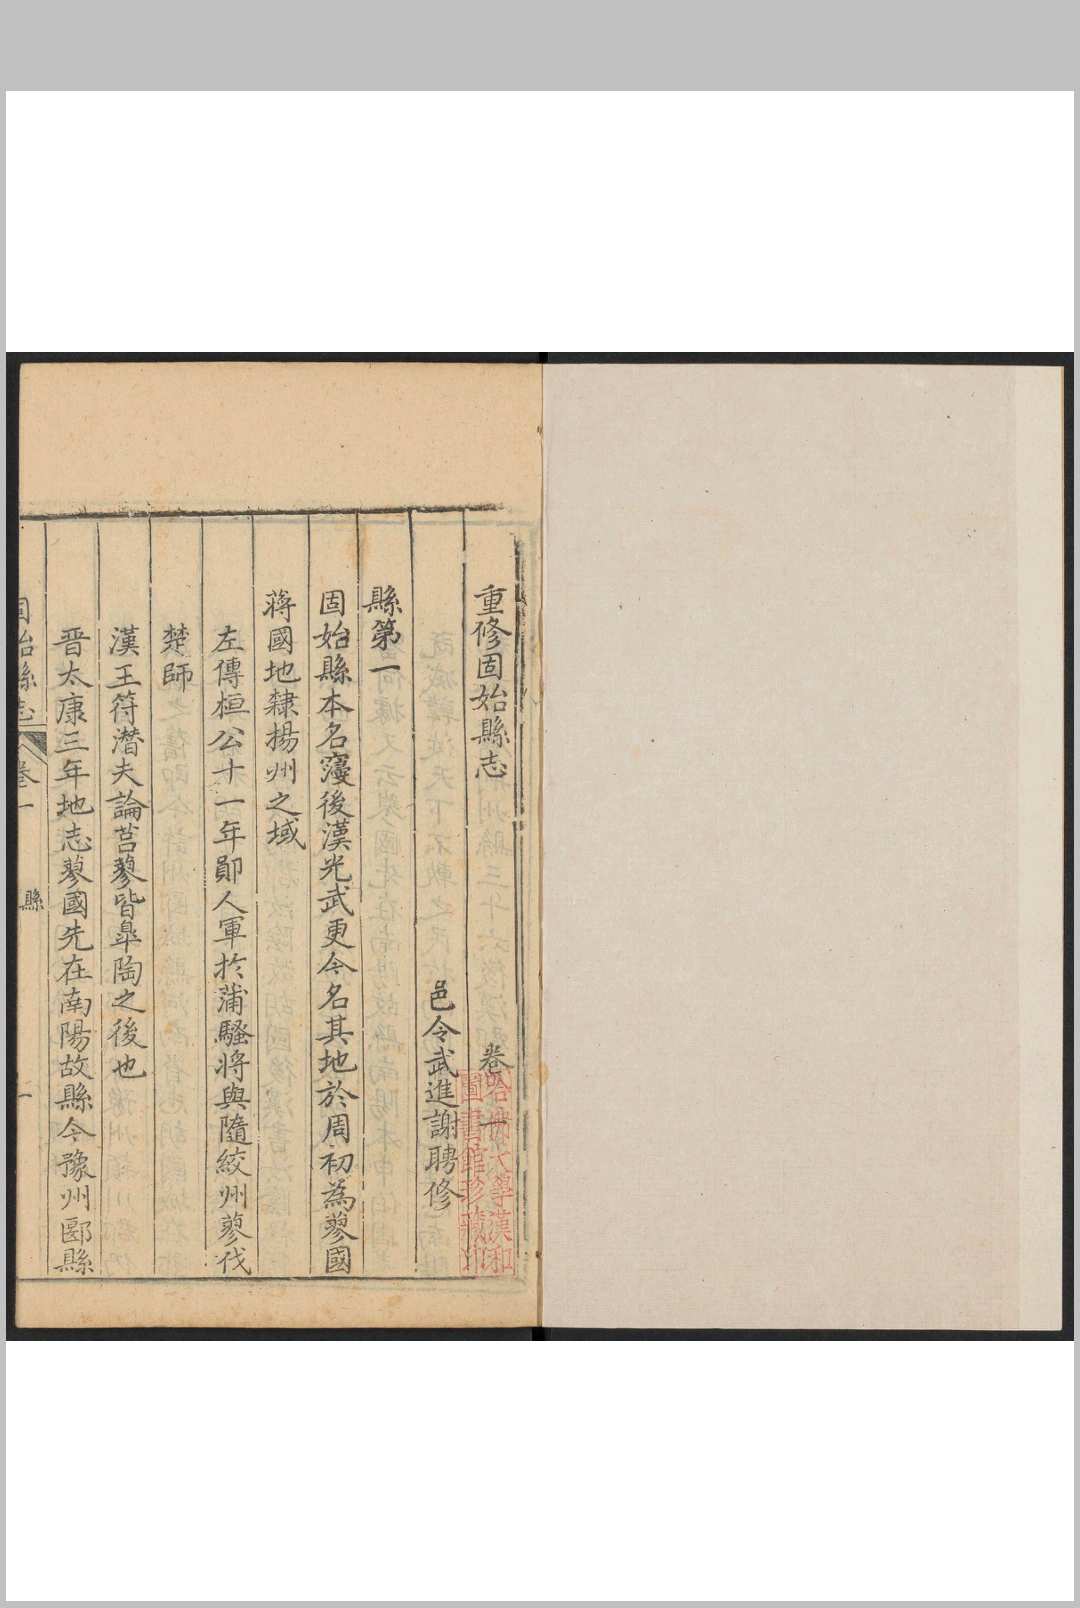 重修固始縣志 卷一
邑令武進謝聘修
縣第一
固始縣本名寖後漢光武更今名其地於周初為蓼國
蔣國地隸揚州之域
左傳桓公十一年鄖人軍於蒲騷將與隨絞州蓼伐
楚師
漢王符潛夫論莒蓼皆臯陶之後也
晋太康三年地志蓼國先在南陽故縣今豫州郾縣
固始縣志 卷一 縣 一
哈佛大學漢和
圖書館珍藏印